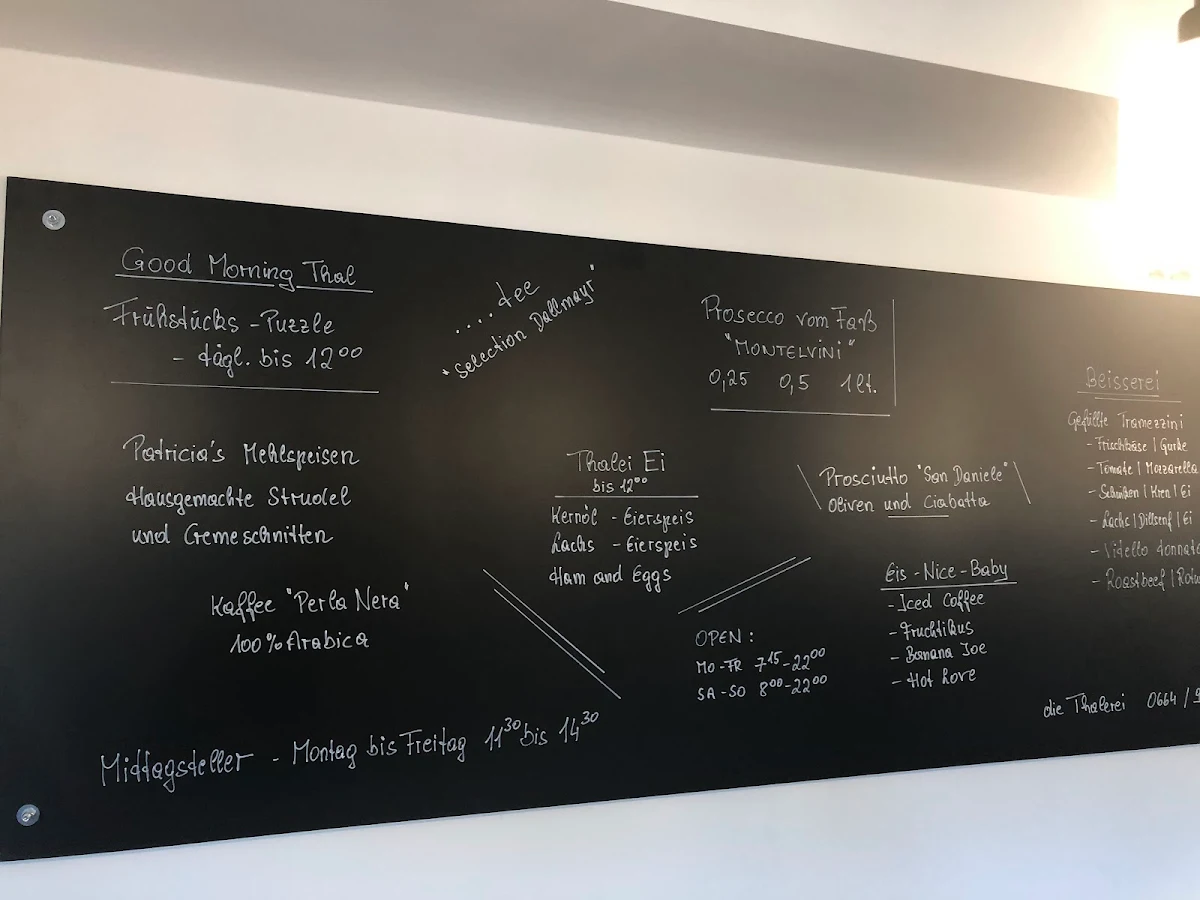 Good Morning Thal
Frühstücks - Puzzle
- tägl. bis 12⁰⁰
.... tee
"Selection Dallmayr"
Prosecco vom Faß
"MONTELVINI"
0,25 0,5 1 lt.
Patricia's Mehlspeisen
Hausgemachte Strudel
und Cremeschnitten
Kaffee "Perla Nera"
100% Arabica
Thalei Ei
bis 12⁰⁰
Kernöl - Eierspeis
Lachs - Eierspeis
Ham and Eggs
Prosciutto "San Daniele"
Oliven und Ciabatta
Beisserei
Gefüllte Tramezzini
- Frischkäse | Gurke
- Tomate | Mozzarella
- Schinken | Kren | Ei
- Lachs | Dillsenf | Ei
- Vitello tonnato
- Roastbeef |
Eis - Nice - Baby
- Iced Coffee
- Fruchtikus
- Banana Joe
- Hot Love
OPEN :
MO - FR 7¹⁵ - 22⁰⁰
SA - SO 8⁰⁰ - 22⁰⁰
die Thalerei 0664 /
Mittagsteller - Montag bis Freitag 11³⁰ bis 14³⁰